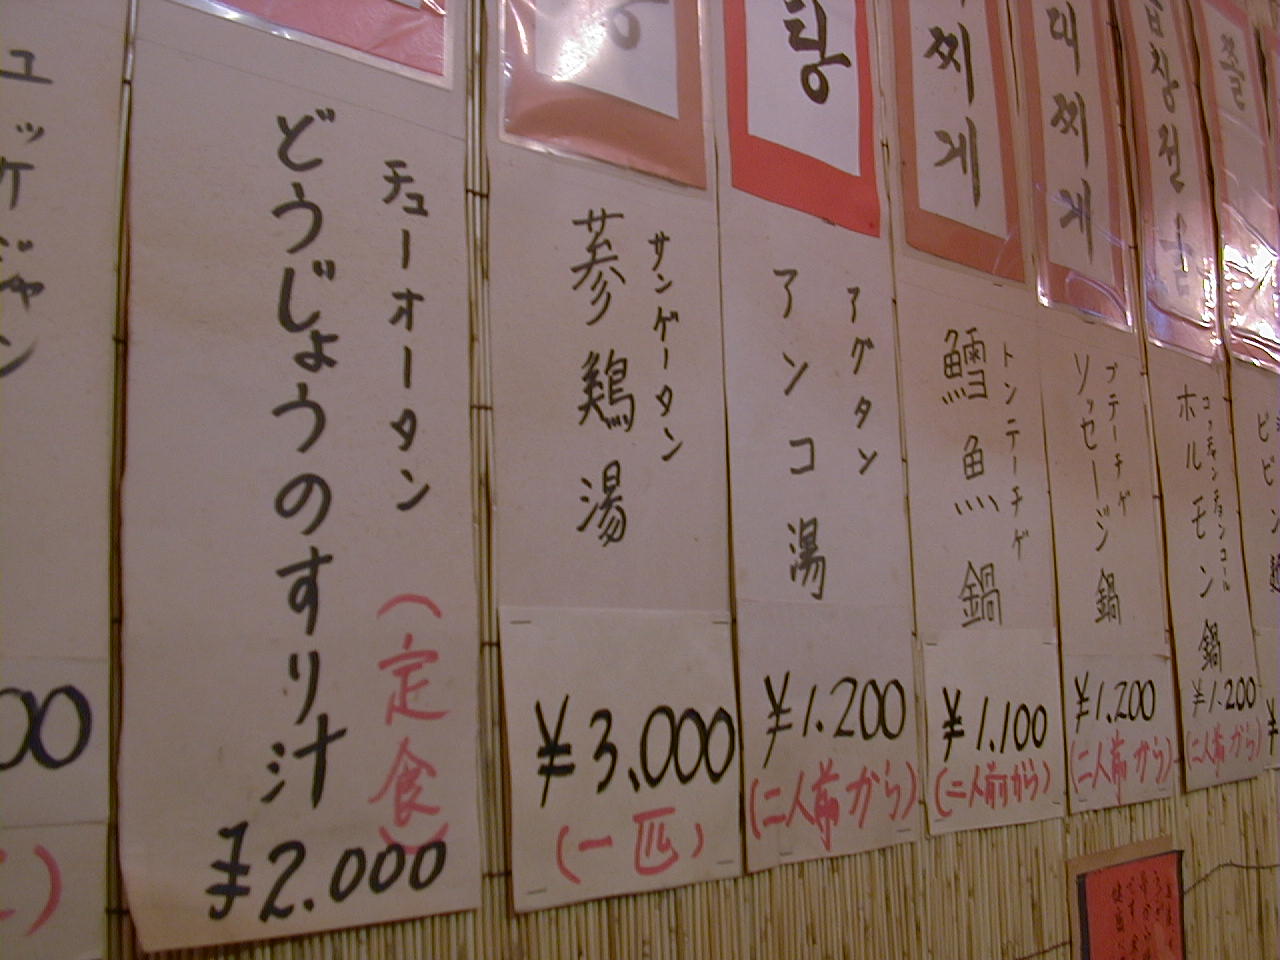 ユッケジャン
00
どうじょうのすり汁
チューオータン
(定食)
¥2.000
蔘鶏湯
サンゲータン
¥3.000
(一匹)
탕
アンコ湯
アグタン
¥1.200
(二人前から)
찌게
鱈魚鍋
トンテーチゲ
¥1.100
(二人前から)
대찌게
ソッセージ鍋
プテーチゲ
¥1.200
(二人前から)
곱창전골
ホルモン鍋
コッチャンチョンゴール
¥1.200
(二人前から)
ビビン麺